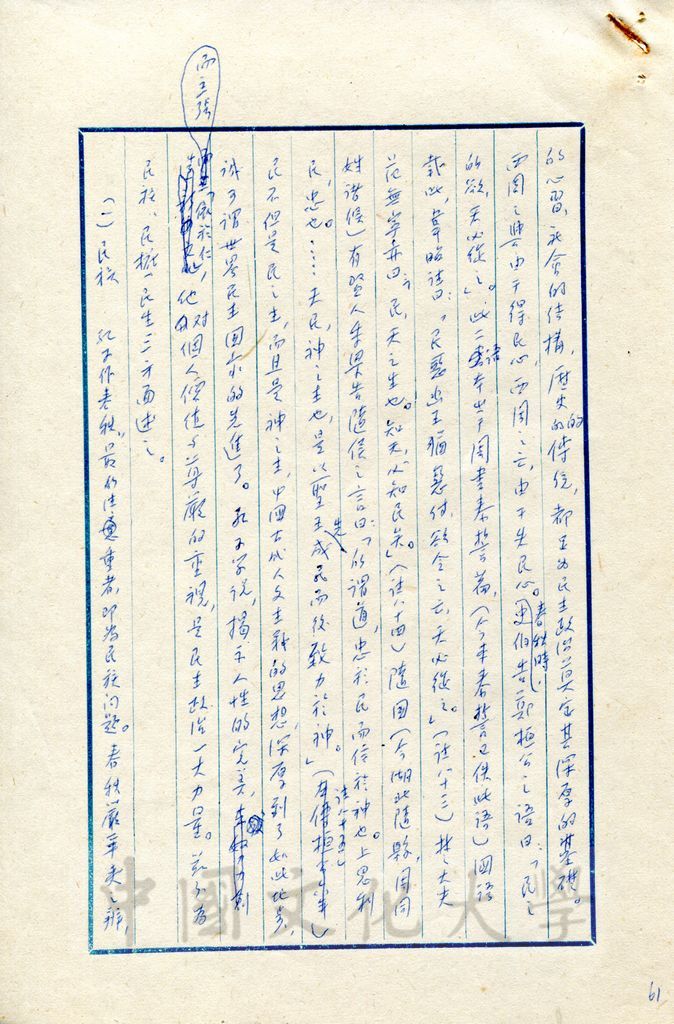 的心習，社會的結構，歷史的傳統，都足為民主政治奠定其深厚的基礎。
西周之興由于得民心，西周之亡，由于失民心。春秋時，史伯告鄭桓公之語曰：「民之
所欲，天必從之」。此二語本出于周書泰誓篇，（今本泰誓已佚此語）國語
載此，韋昭註曰：「民惡幽王猶惡紂，欲令之亡，天必從之。」（註八十三）楚大夫
范無宇亦曰：「民，天之生也。知天，必知民矣」（註八十四）隨國（今湖北隨縣，周同
姓諸侯）有賢人季梁告隨侯之言曰：「所謂道，忠於民而信於神也。上思利
民，忠也。……夫民，神之主也，是以聖王先成民而後致力於神。」（左傳桓公六年）註八十五
民不但是民之主，而且是神之主，中國古代人文主義的思想，深厚到了如此地步，
誠可謂世界民主國家的先進了。孔子學說，揭示人性的完美，
而主張「依於仁」，他對個人價值與尊嚴的重視，是民主政治一大力量。茲分為
民族、民權、民生三方面述之。
（一）民族 孔子作春秋，最所注重者，即為民族问题。春秋嚴華夷之辨，
中國文化大學
61